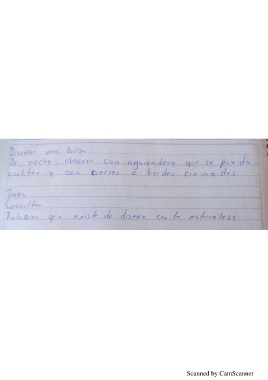 Diseñar una bolsa
De noche obscura con agarradera que se pueda
ocultar y con cierres o bordes cromados
Tarea
Consultar
Relacion que existe de diseño con la naturaleza
Scanned by CamScanner